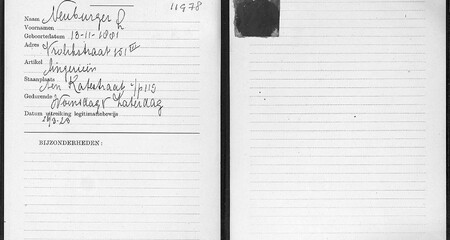 11978
Naam Neuburger
Voornamen
Geboortedatum 13-11-1901
Adres Trolikstraat 151 III
Artikel lingerieën
Staanplaats Ten Katestraat t/o 119
Gedurende Woensdag & Zaterdag
Datum uitreiking legitimatiebewijs
BIJZONDERHEDEN: